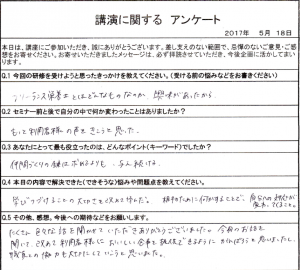 講演に関する アンケート
2017年 5月 18日
本日は、講座にご参加いただき、誠にありがとうございます。差し支えのない範囲で、忌憚のないご意見・ご感
想をお寄せください。お寄せいただきましたメッセージは、必ず拝読させていただき、今後企画に活かしてまい
ります。
Q.1 今回の研修を受けようと思ったきっかけを教えてください。(受ける前の悩みなどをお書きください)
フリーランス栄養士とはどんなものなのか、興味があったから。
Q.2 セミナー前と後で自分の中で何か変わったことはありましたか?
もっと利用者様の声をきこうと思った。
Q.3 あなたにとって最も役立ったのは、どんなポイント(キーワード)でしたか?
仲間づくりの秘訣は求めるより、与え続ける。
Q.4 本日の内容で解決できた(できそうな)悩みや問題点を教えてください。
学びつづけることの大切さを改めて学んだ。 相手のために何ができるかで、自分への
Q.5 その他、感想、今後への期待などをお願します。
たくさん色々な話を聞かせていただきありがとうございました。今回のお話を
聞いて、改めて利用者様においしい食事を提供できるように、がんばろうと思いましたし、
職員との協力も大切にしていこうと思いました。